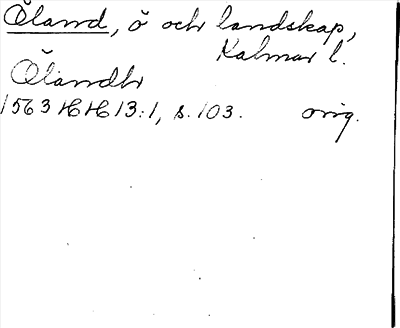 Öland, ö och landskap,
Kalmar l.
Ölandh
1563 HH 13:1, s. 103. orig.